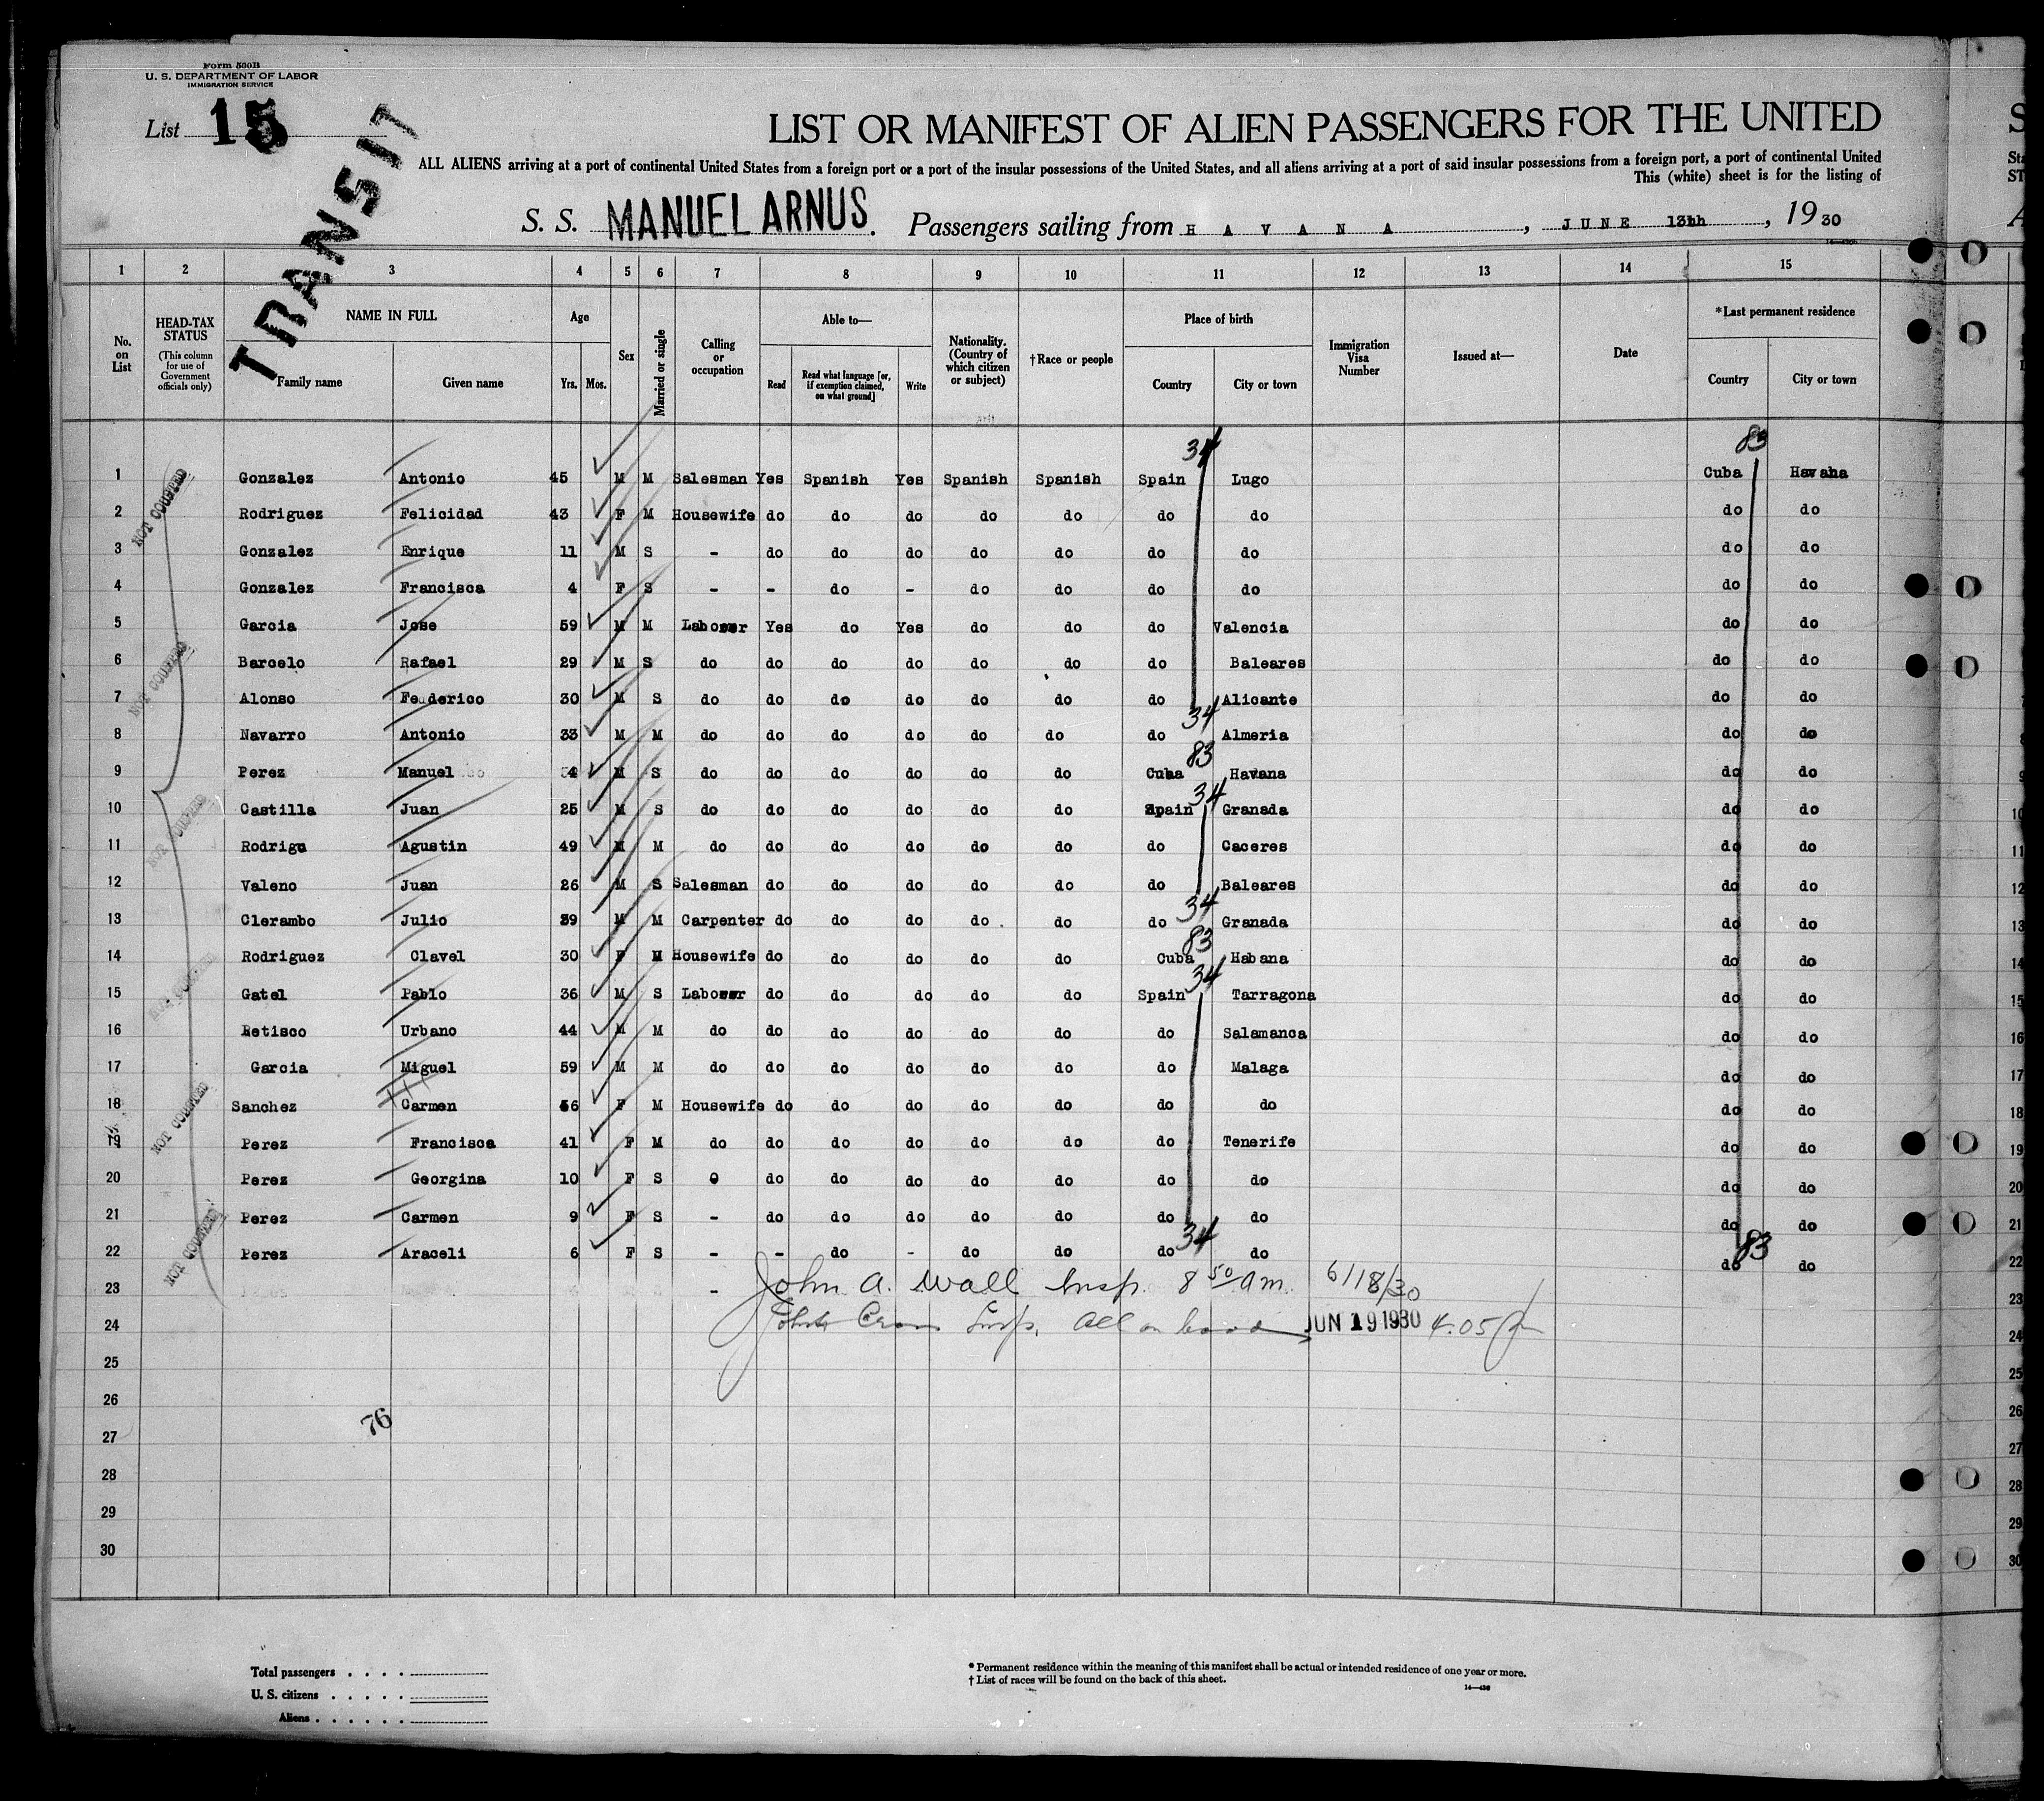 Form 500B
U. S. DEPARTMENT OF LABOR
IMMIGRATION SERVICE
List 15
TRANSIT
LIST OR MANIFEST OF ALIEN PASSENGERS FOR THE UNITED
ALL ALIENS arriving at a port of continental United States from a foreign port or a port of the insular possessions of the United States, and all aliens arriving at a port of said insular possessions from a foreign port, a port of continental United
This (white) sheet is for the listing of
S. S. MANUEL ARNUS. Passengers sailing from HAVANA, JUNE 13th, 1930
1 2 3 4 5 6 7 8 9 10 11 12 13 14 15
No. on List
HEAD-TAX STATUS (This column for use of Government officials only)
NAME IN FULL Family name Given name
Age Yrs. Mos.
Sex
Married or single
Calling or occupation
Able to— Read Read what language [or, if exemption claimed, on what ground] Write
Nationality. (Country of which citizen or subject)
†Race or people
Place of birth Country City or town
Immigration Visa Number
Issued at—
Date
*Last permanent residence Country City or town
34 83
1 Gonzalez Antonio 45 M M Salesman Yes Spanish Yes Spanish Spanish Spain Lugo Cuba Havana
2 Rodriguez Felicidad 43 F M Housewife do do do do do do do do do
3 Gonzalez Enrique 11 M S - do do do do do do do do do
4 Gonzalez Francisca 4 F S - - do - do do do do do do
5 Garcia Jose 59 M M Laborer Yes do Yes do do do Valencia do do
6 Barcelo Rafael 29 M S do do do do do do do Baleares do do
7 Alonso Federico 30 M S do do do do do do do Alicante do do
34
8 Navarro Antonio 33 M M do do do do do do do Almeria do do
83
9 Perez Manuel M S do do do do do do Cuba Havana do do
34
10 Castilla Juan 25 M S do do do do do do Spain Granada do do
11 Rodrigu Agustin 49 M M do do do do do do do Caceres do do
12 Valeno Juan 26 M S Salesman do do do do do do Baleares do do
34
13 Clerambo Julio 39 M M Carpenter do do do do do do Granada do do
83
14 Rodriguez Clavel 30 F M Housewife do do do do do Cuba Habana do do
34
15 Gatel Pablo 36 M S Laborer do do do do do Spain Tarragona do do
16 Retisco Urbano 44 M M do do do do do do do Salamanca do do
17 Garcia Miguel 59 M M do do do do do do do Malaga do do
18 Sanchez Carmen 56 F M Housewife do do do do do do do do do
19 Perez Francisca 41 F M do do do do do do do Tenerife do do
20 Perez Georgina 10 F S do do do do do do do do do
21 Perez Carmen 9 F S - do do do do do do do do do
34 83
22 Perez Araceli 6 F S - - do - do do do do do do
23 - John A. Wall Insp. 8 50 am. 6/18/30
24 Insp. All on board JUN 19 1930 4.05 pm
25
26
76
27
28
29
30
NOT COUNTED
NOT COUNTED
NOT COUNTED
NOT COUNTED
NOT COUNTED
NOT COUNTED
Total passengers
U. S. citizens
Aliens
* Permanent residence within the meaning of this manifest shall be actual or intended residence of one year or more.
† List of races will be found on the back of this sheet.